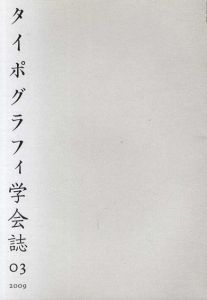 タイポグラフィ学会誌
03
2009